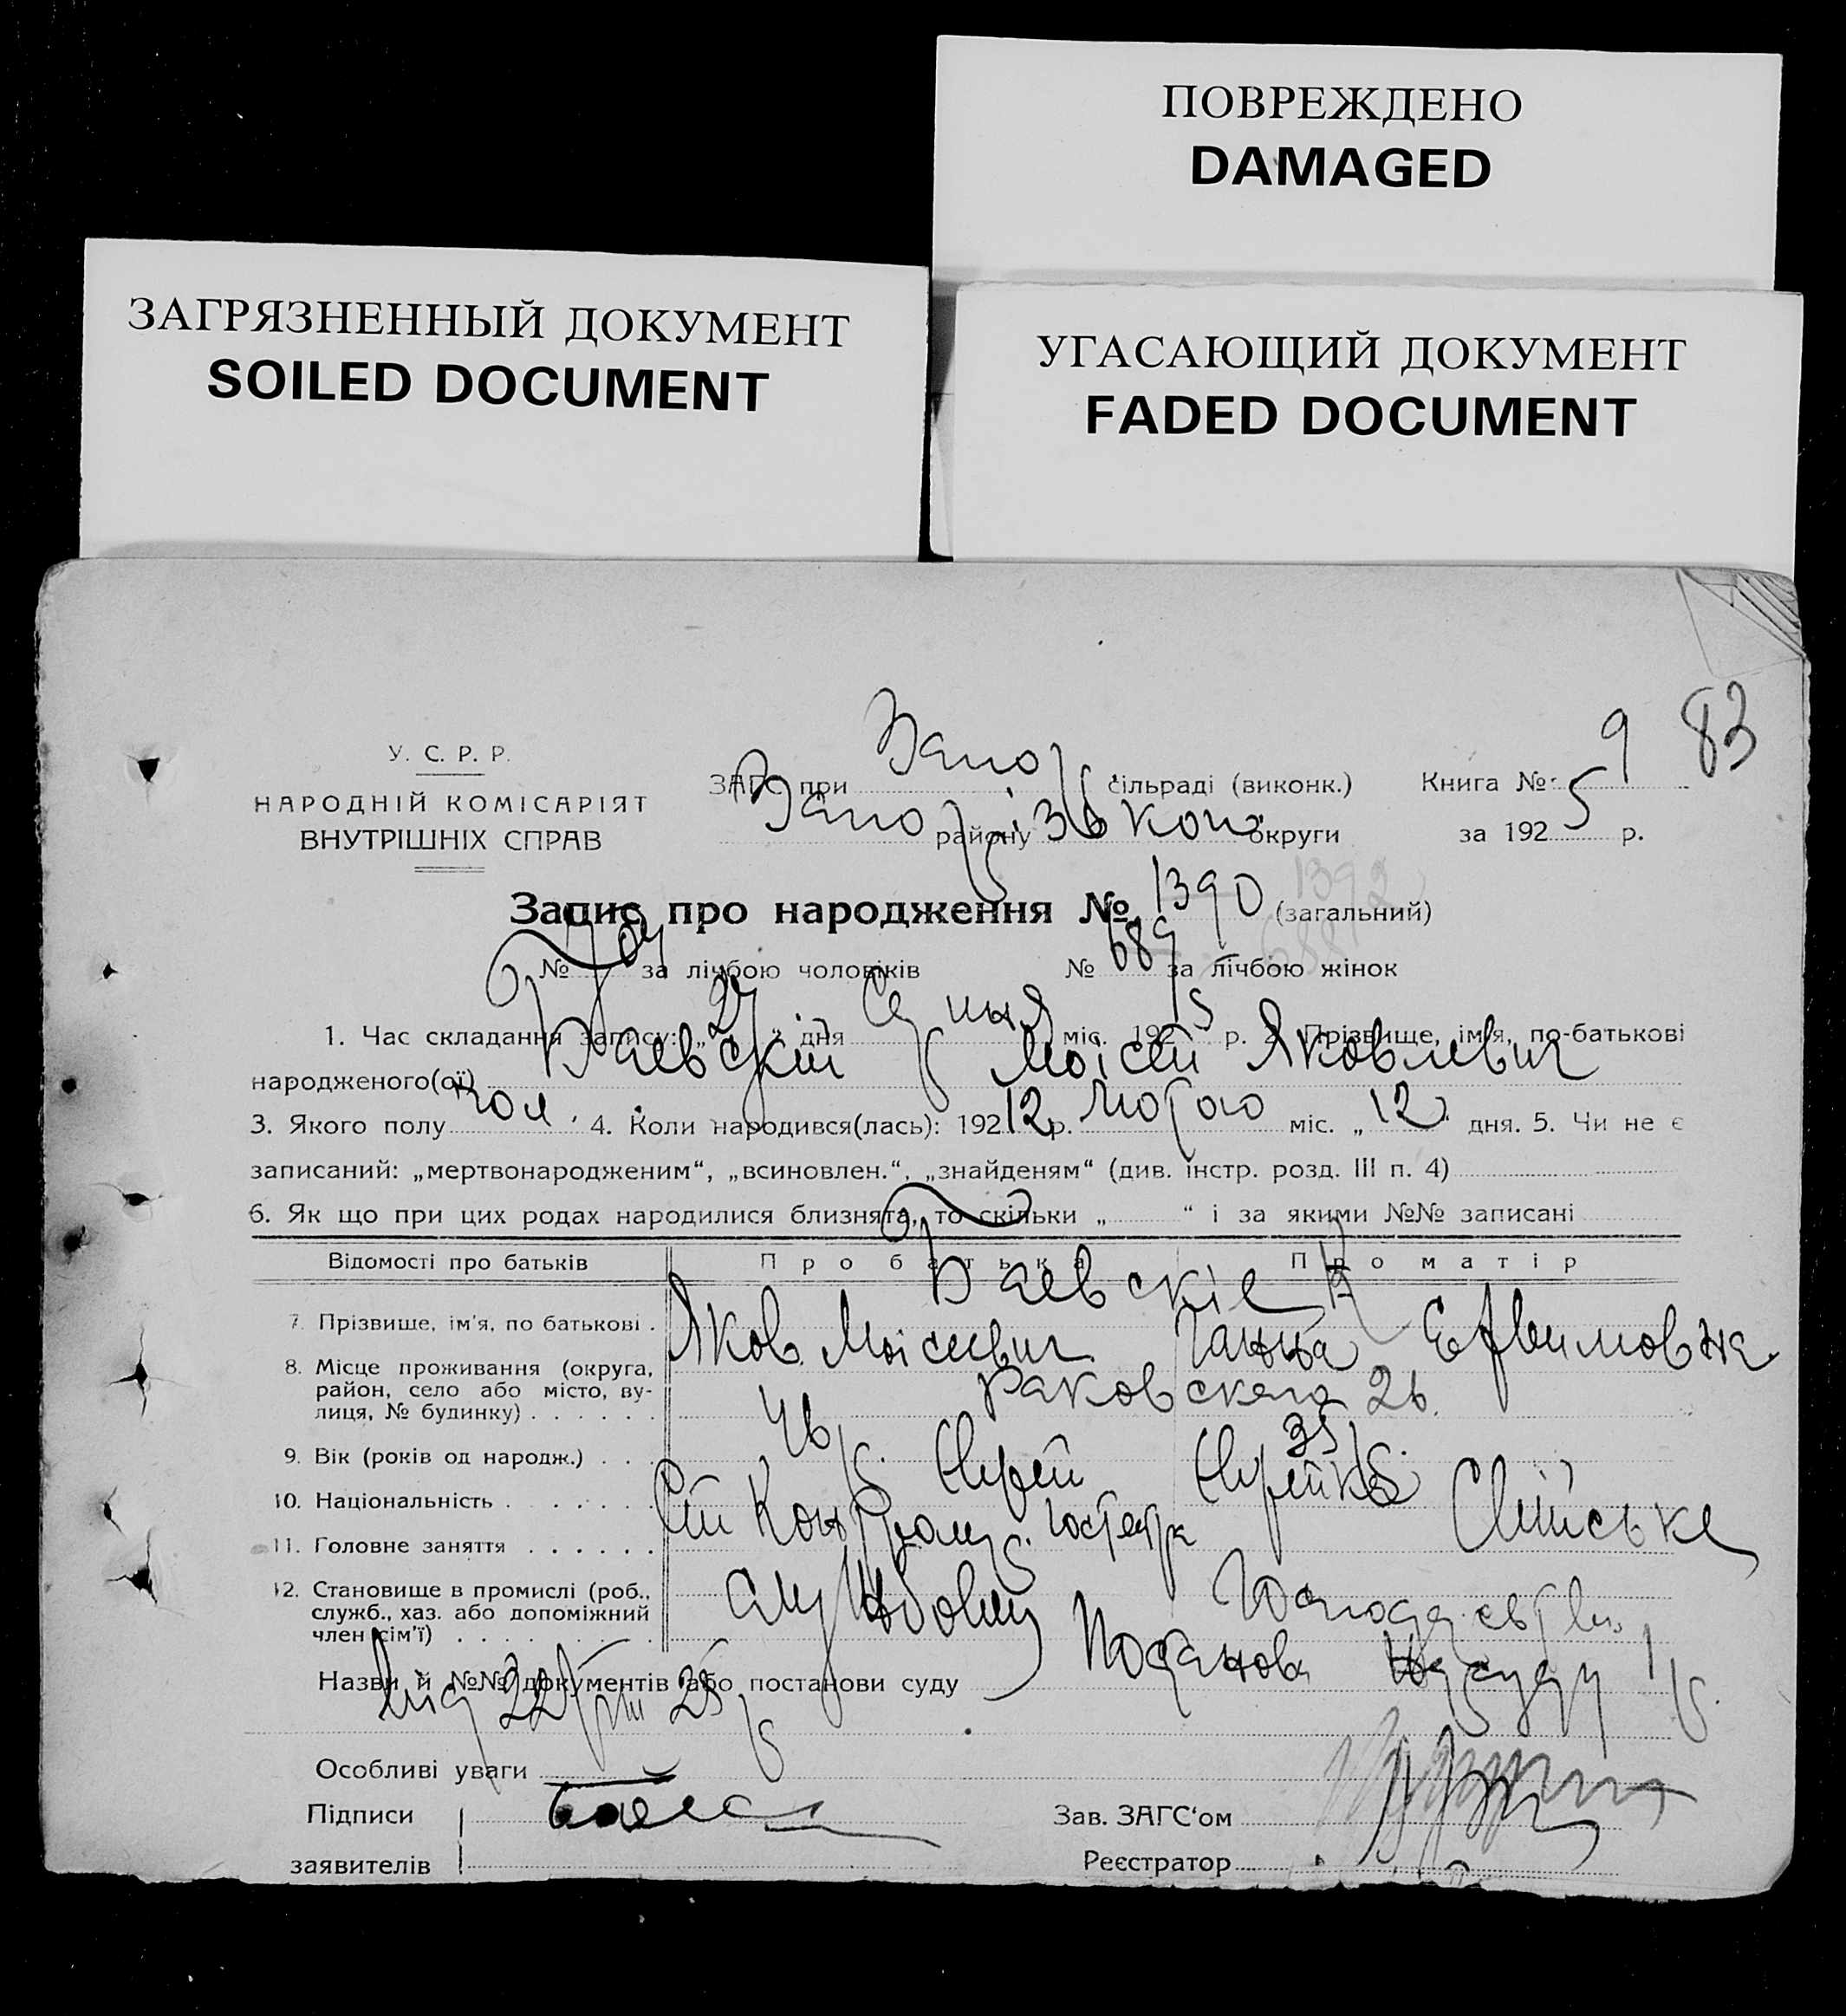 ПОВРЕЖДЕНО
DAMAGED
ЗАГРЯЗНЕННЫЙ ДОКУМЕНТ
SOILED DOCUMENT
УГАСАЮЩИЙ ДОКУМЕНТ
FADED DOCUMENT
83
У. С. Р. Р.
НАРОДНІЙ КОМІСАРІЯТ
ВНУТРІШНІХ СПРАВ
ЗАГС при Запор сільраді (виконк.) Книга № 9
району округи за 192 5 р.
Запис про народження № 1390 1392 (загальний)
№ 704 за лічбою чоловіків № 689 688 за лічбою жінок
1. Час складання запису: „ 27 “ дня Серпня міс. 192 5 р. 2. Прізвище, імя, по-батькові
народженого(ої) Баевскій Моісей Яковлевич
3. Якого полу чол. 4. Коли народився(лась): 192 12 р. Лютого міс. „ 12 “ дня. 5. Чи не є
записаний: „мертвонародженим“, „всиновлен.“, „знайденям“ (див. інстр. розд. III п. 4)
6. Як що при цих родах народилися близнята, то скільки „ “ і за якими №№ записані
Відомості про батьків Про батька Про матір
Баевскіе
7. Прізвище, ім'я, по батькові . Яков Моісеевич Ганна Ефимовна
8. Місце проживання (округа,
район, село або місто, ву-
лиця, № будинку) . . . . . . Раковского 26.
9. Вік (років од народж.) . . . 46 р. 35 р.
10. Національність . . . . . . Єврей Єврейка
11. Головне заняття . . . . . . Сімйське
12. Становище в промислі (роб.,
служб., хаз. або допоміжний
член сім'ї) . . . . . . . . . Службовец
Назви й №№ документів або постанови суду Постанова Нарсуду
від 22/VIII 25 р.
Особливі уваги
Підписи
заявителів
Зав. ЗАГС'ом
Реєстратор